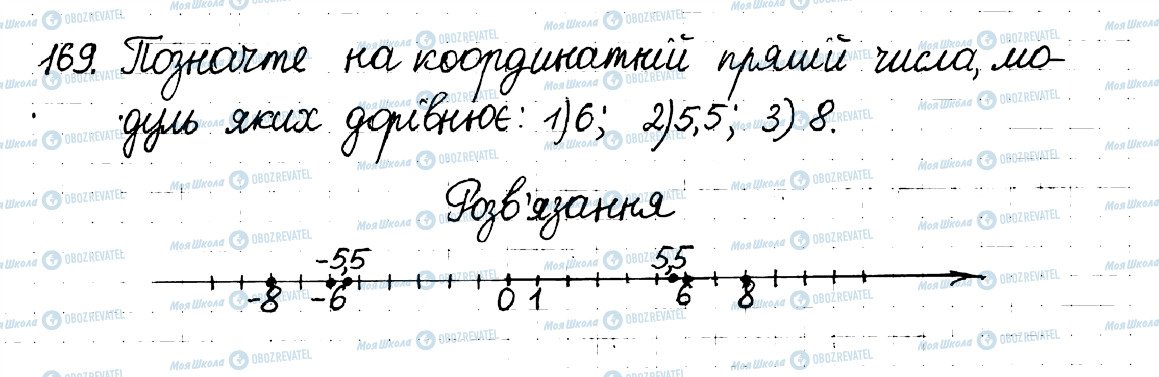 169. Позначте на координатній прямій числа, мо-
дуль яких дорівнює: 1) 6; 2) 5,5; 3) 8.
Розв'язання
-5,5 5,5
-8 -6 0 1 6 8
МояШкола OBOZREVATEL